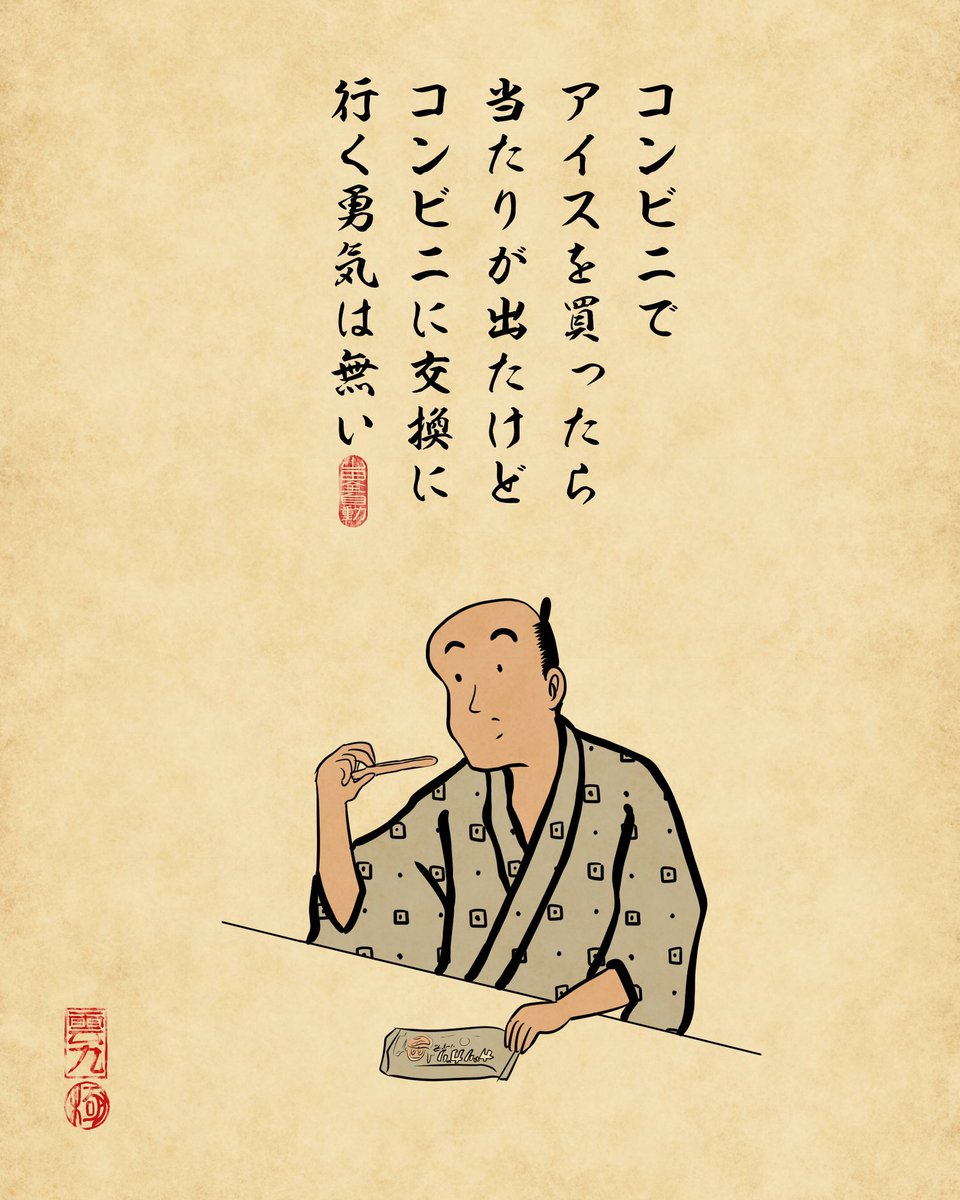 コンビニで
アイスを買ったら
当たりが出たけど
コンビニに交換に
行く勇気は無い